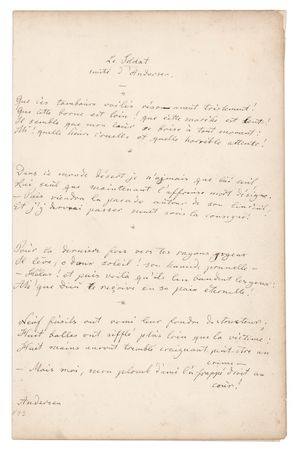 Le Soldat
imité d'Andersen.
Que ces tambours voilés résonnent tristement!
Que cette borne est loin! que cette marche est lente!
Il semble que mon cœur se brise à tout moment:
Ah! quelle heure cruelle et quelle horrible attente!
Dans ce monde désert je n'aimais que lui seul,
Lui seul que maintenant l'affreuse mort désigne,
- Vais viendra la parade autour de son linceul,
Et j'y devrai passer muet sous la consigne!
Pour la dernière fois vers tes rayons
Il lève, ô doux soleil! son humide prunelle -
- Hélas! et puis voilà qu'ils lui bandent les yeux:
Ah! que Dieu te reçoive en sa paix éternelle!
Neuf fusils ont vomi leur foudre
Huit balles ont sifflé plus loin que la victime:
Huit mains auront tremblé craignant peut-être un
crime -
- Mais moi, mon plomb d'ami l'a frappé droit au
cœur!
Andersen